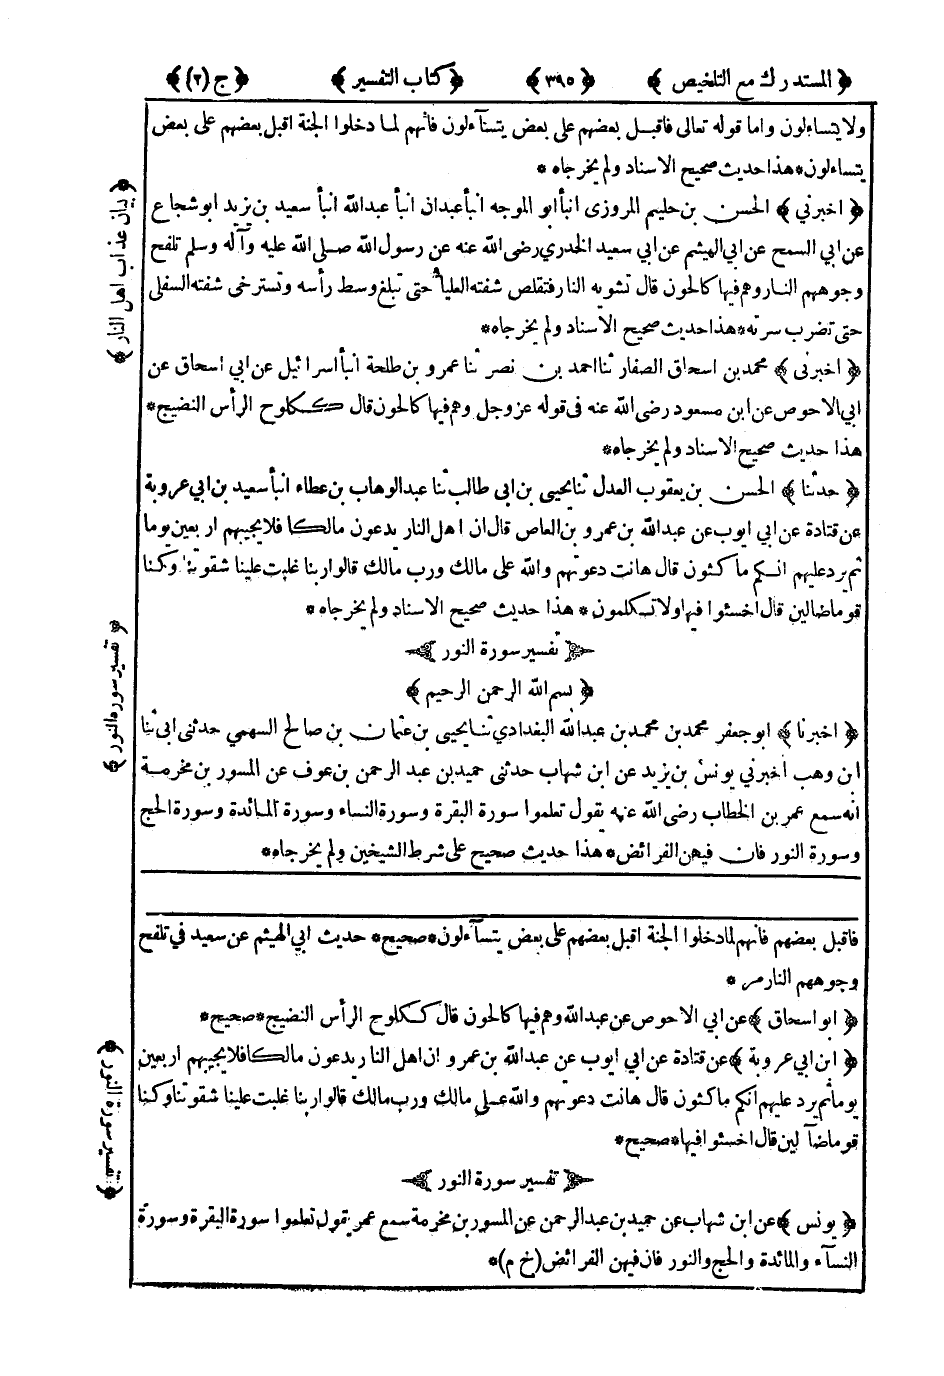 ﴿ المستدرك مع التلخيص ﴾ ﴿ ٣٩٥ ﴾ ﴿ كتاب التفسير ﴾ ﴿ ج (٢) ﴾
ولا يتساءلون واما قوله تعالى فاقبل بعضهم على بعض يتسآءلون فانهم لما دخلوا الجنة اقبل بعضهم على بعض
يتساءلون * هذا حديث صحيح الاسناد ولم يخرجاه *
﴿ اخبرني ﴾ الحسن بن حليم المروزى انبأ ابو الموجه انبأ عبدان انبأ عبدالله انبأ سعيد بن يزيد ابو شجاع
عن ابي السمح عن ابي الهيثم عن ابي سعيد الخدري رضى الله عنه عن رسول الله صلى الله عليه وآله وسلم تلفح
وجوههم النار وهم فيها كالحون قال تشويه النار فتقلص شفته العليا حتى تبلغ وسط رأسه وتسترخى شفته السفلى
حتى تضرب سرته * هذا حديث صحيح الاسناد ولم يخرجاه *
﴿ اخبرنى ﴾ محمد بن اسحاق الصفار ثنا احمد بن نصر ثنا عمرو بن طلحة انبأ اسرائيل عن ابي اسحاق عن
ابي الاحوص عن ابن مسعود رضى الله عنه فى قوله عزوجل وهم فيها كالحون قال ككلوح الرأس النضيج *
هذا حديث صحيح الاسناد ولم يخرجاه *
﴿ حدثنا ﴾ الحسن بن يعقوب العدل ثنا يحيى بن ابى طالب ثنا عبدالوهاب بن عطاء انبأ سعيد بن ابي عروبة
عن قتادة عن ابي ايوب عن عبدالله بن عمرو بن العاص قال ان اهل النار يدعون مالكا فلا يجيبهم اربعين يوما
ثم يرد عليهم انكم ماكثون قال هانت دعوتهم والله على مالك ورب مالك قالوا ربنا غلبت علينا شقوتنا وكنا
قوما ضالين قال اخسئوا فيها ولا تكلمون * هذا حديث صحيح الاسناد ولم يخرجاه *
تفسير سورة النور
﴿ بسم الله الرحمن الرحيم ﴾
﴿ اخبرنا ﴾ ابو جعفر محمد بن محمد بن عبدالله البغدادي ثنا يحيى بن عثمان بن صالح السهمي حدثنى ابى ثنا
ابن وهب اخبرني يونس بن يزيد عن ابن شهاب حدثنى حميد بن عبد الرحمن بن عوف عن المسور بن مخرمة
انه سمع عمر بن الخطاب رضى الله عنه يقول تعلموا سورة البقرة وسورة النساء وسورة المائدة وسورة الحج
وسورة النور فان فيهن الفرائض * هذا حديث صحيح على شرط الشيخين ولم يخرجاه *
فاقبل بعضهم فانهم لما دخلوا الجنة اقبل بعضهم على بعض يتسآءلون * صحيح * حديث ابي الهيثم عن سعيد في تلفح
وجوههم النار مر *
﴿ ابو اسحاق ﴾ عن ابي الاحوص عن عبدالله وهم فيها كالحون قال ككلوح الرأس النضيج * صحيح *
﴿ ابن ابي عروبة ﴾ عن قتادة عن ابي ايوب عن عبدالله بن عمرو ان اهل النار يدعون مالكا فلا يجيبهم اربعين
يوما ثم يرد عليهم انكم ماكثون قال هانت دعوتهم والله على مالك ورب مالك قالوا ربنا غلبت علينا شقوتنا وكنا
قوما ضآلين قال اخسئوا فيها * صحيح *
تفسير سورة النور
﴿ يونس ﴾ عن ابن شهاب عن حميد بن عبدالرحمن عن المسور بن مخرمة سمع عمر يقول تعلموا سورة البقرة وسورة
النسآء والمائدة والحج والنور فان فيهن الفرائض (خ م) *
﴿ بيان عذاب اهل النار ﴾
﴿ تفسير سورة النور ﴾
﴿ تفسير سورة النور ﴾